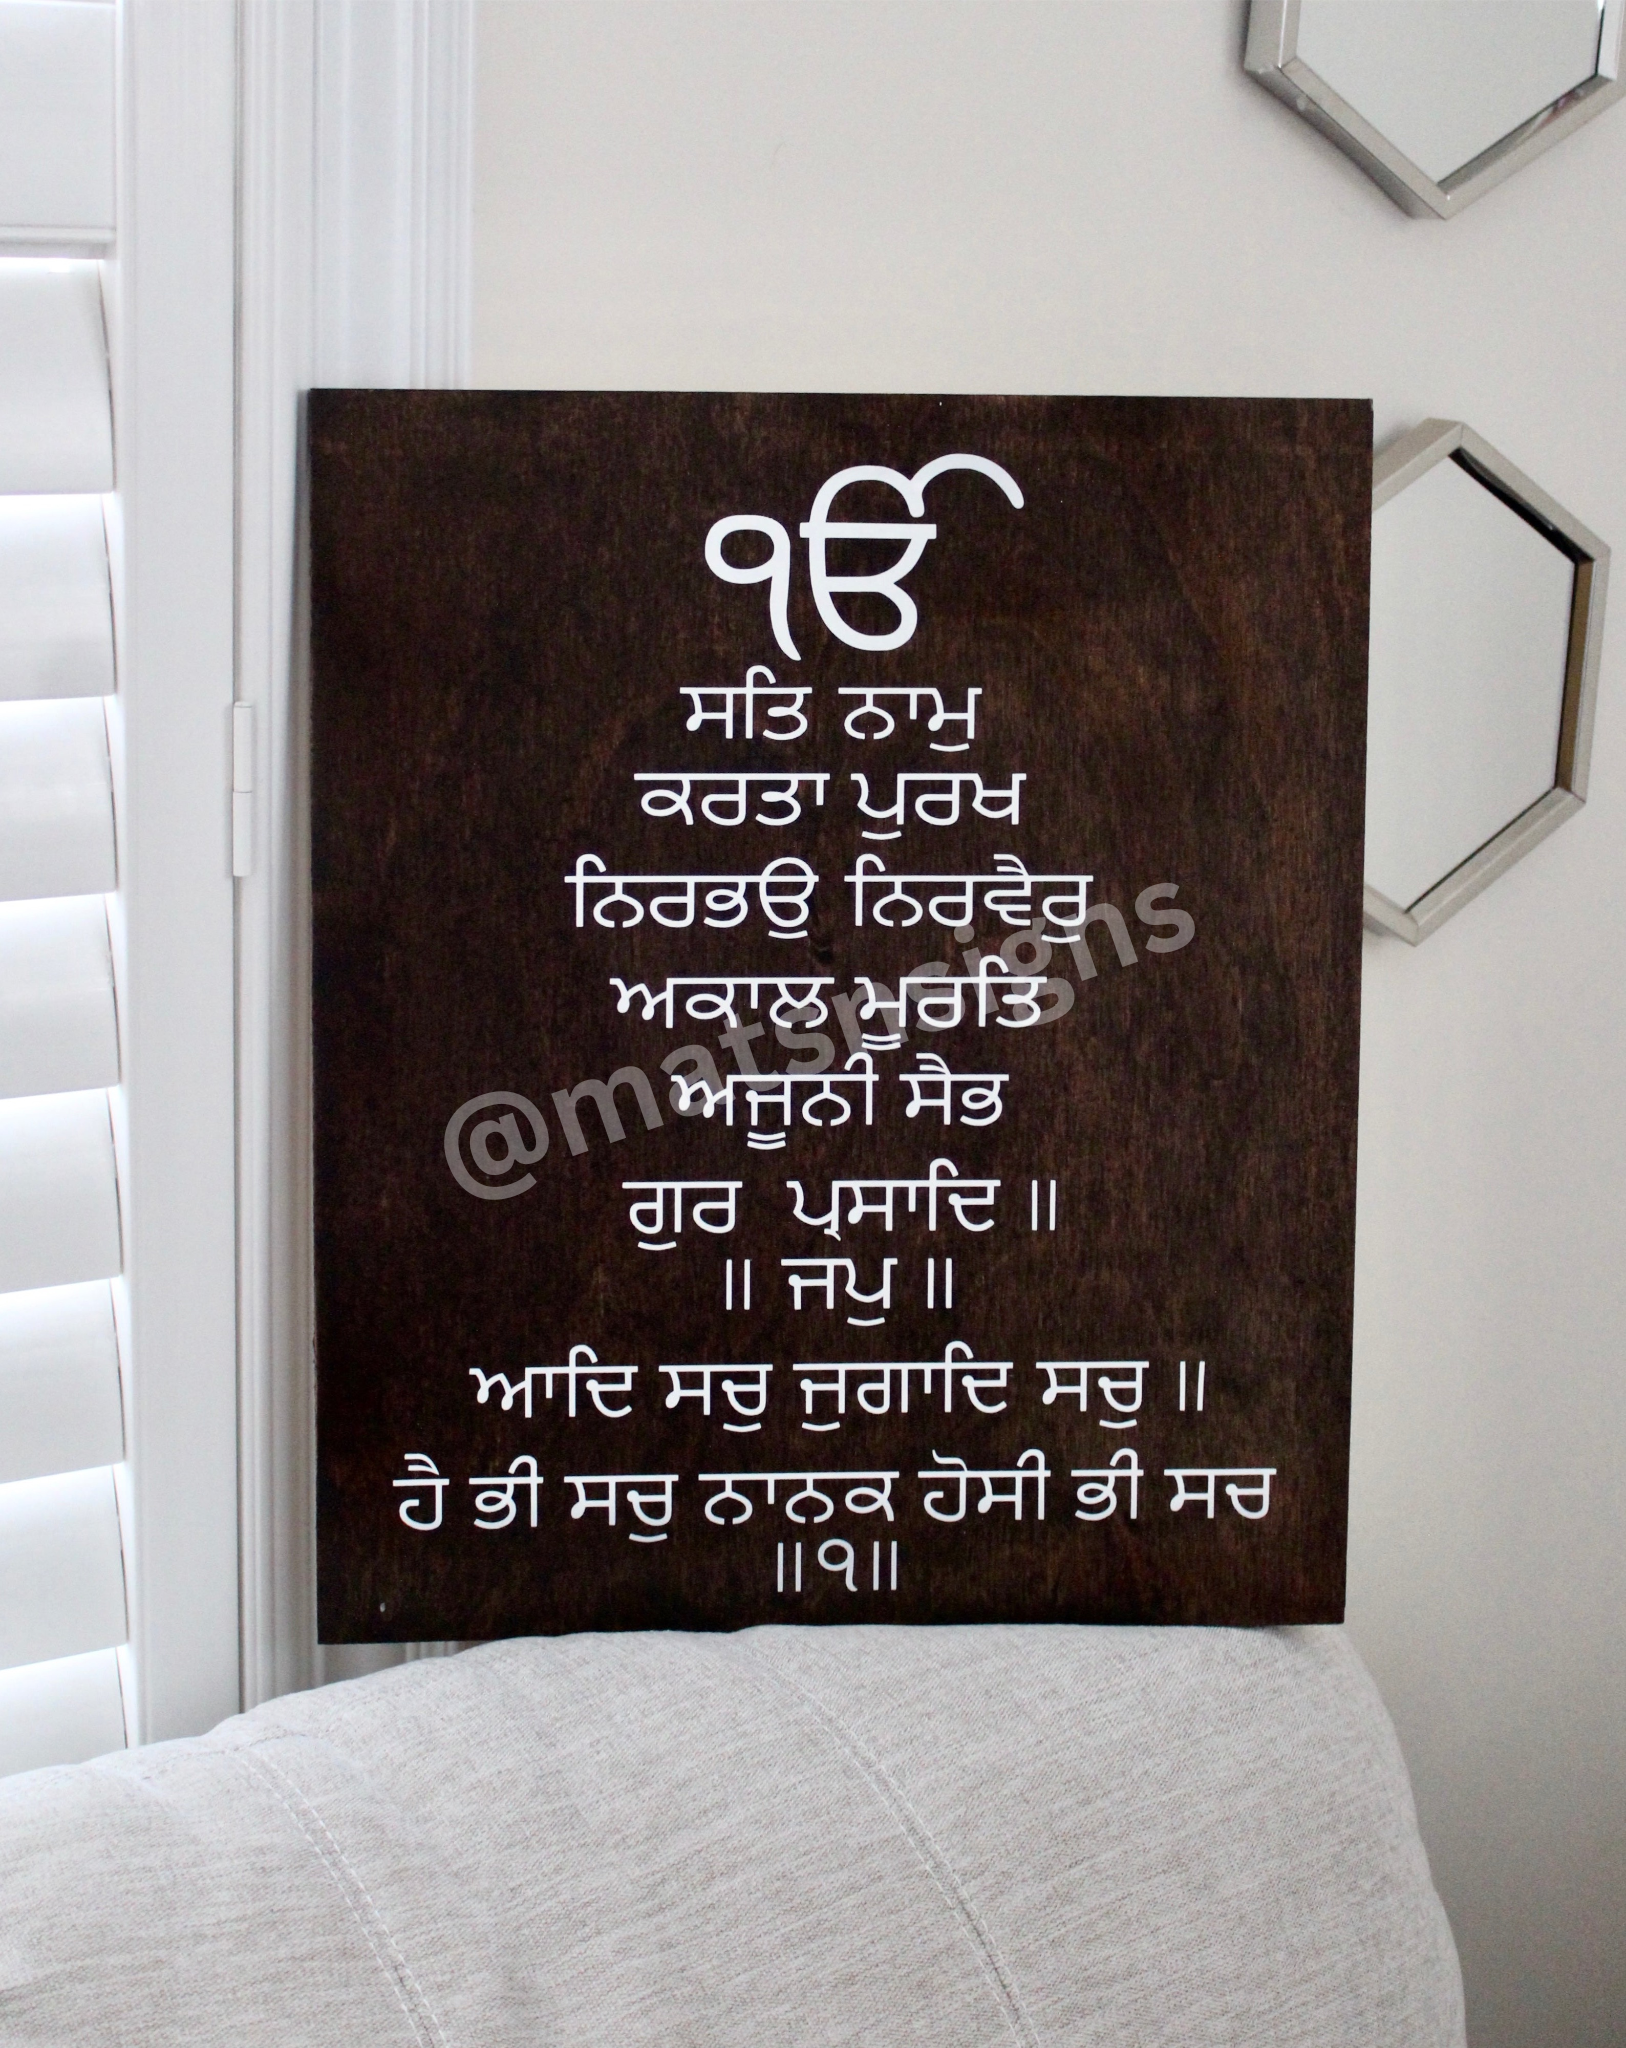 ੴ
ਸਤਿ ਨਾਮੁ
ਕਰਤਾ ਪੁਰਖ
ਨਿਰਭਉ ਨਿਰਵੈਰੁ
ਅਕਾਲ ਮੂਰਤਿ
ਅਜੂਨੀ ਸੈਭ
ਗੁਰ ਪ੍ਰਸਾਦਿ ॥
॥ ਜਪੁ ॥
ਆਦਿ ਸਚੁ ਜੁਗਾਦਿ ਸਚੁ ॥
ਹੈ ਭੀ ਸਚੁ ਨਾਨਕ ਹੋਸੀ ਭੀ ਸਚ
॥੧॥
@matsnsigns